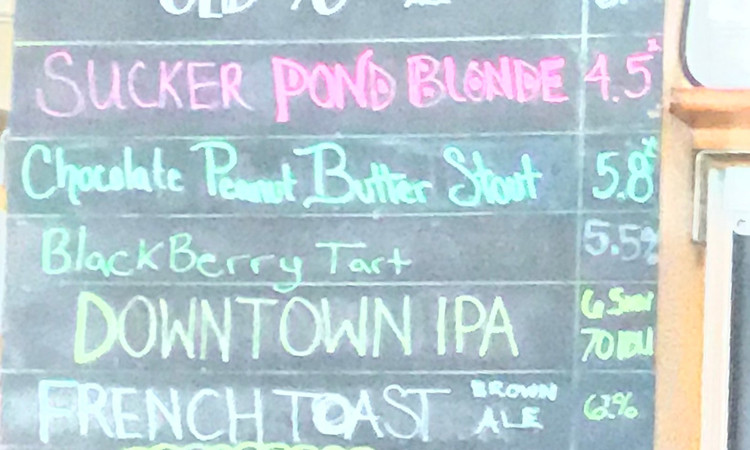 SUCKER POND BLONDE 4.5%
Chocolate Peanut Butter Stout 5.8%
BlackBerry Tart 5.5%
DOWNTOWN IPA
70 IBU
FRENCH TOAST BROWN ALE 6.2%